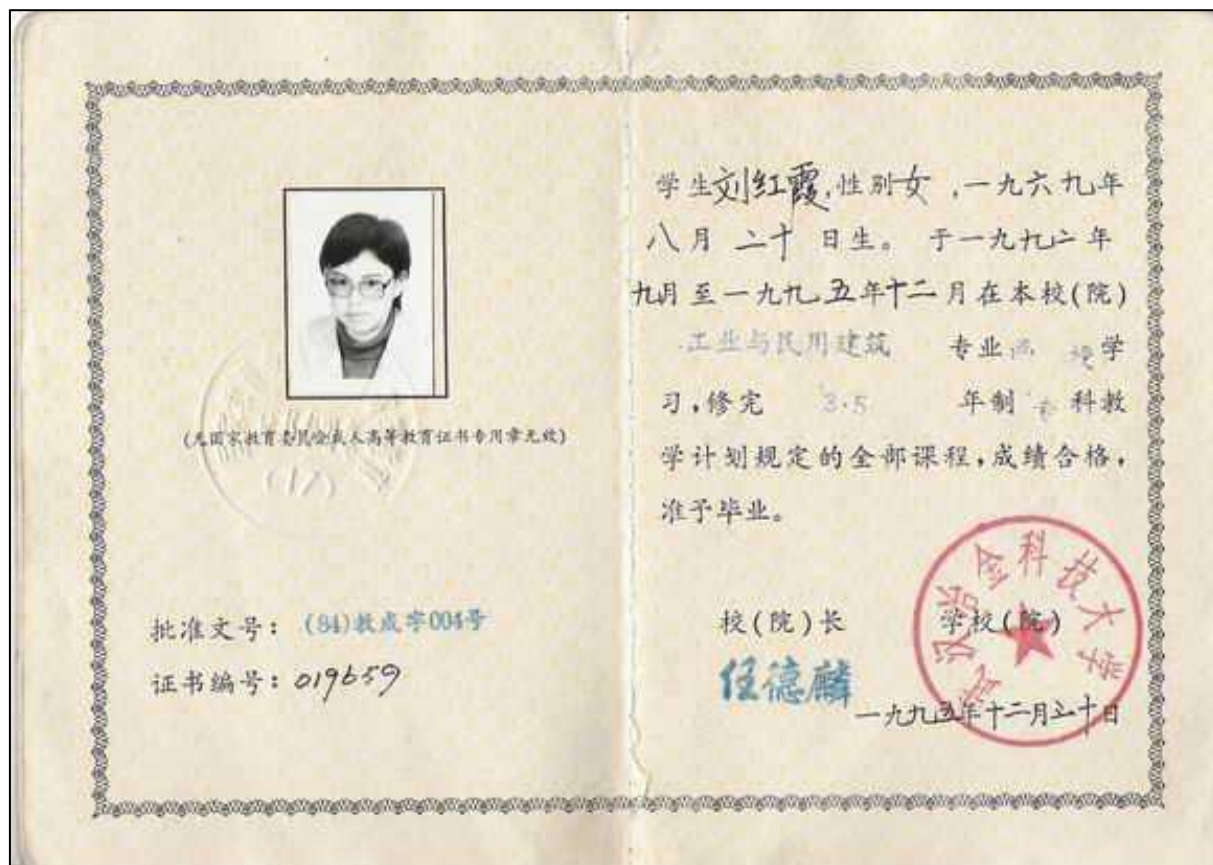 (无国家教育委员会成人高等教育证书专用章无效)
批准文号：(84)教成字004号
证书编号：019659
学生刘红霞，性别女，一九六九年
八月 二十 日生。于一九九二年
九月至一九九五年十二月在本校(院)
工业与民用建筑 专业 学
习，修完 3.5 年制 专 科教
学计划规定的全部课程，成绩合格，
准予毕业。
校(院)长 学校(院)
任德麟
一九九五年十二月三十日
武汉冶金科技大学